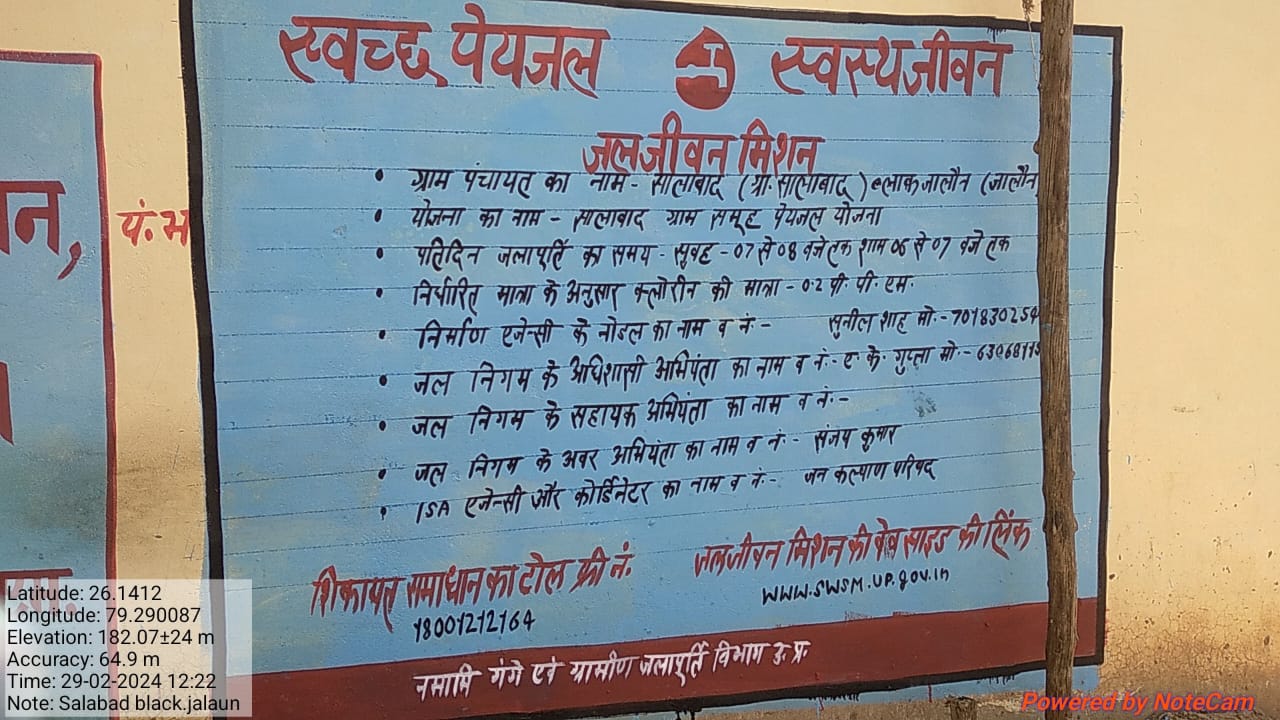 स्वच्छ पेयजल स्वस्थ जीवन
जल जीवन मिशन
• ग्राम पंचायत का नाम - सालाबाद (ग्रा. सालाबाद) ब्लाक जालौन (जालौन
• योजना का नाम - सालाबाद ग्राम समूह पेयजल योजना
• प्रतिदिन जलापूर्ति का समय - सुबह - 07 से 08 बजे तक शाम 06 से 07 बजे तक
• निर्धारित मात्रा के अनुसार क्लोरीन की मात्रा - 0.2 पी. पी. एम.
• निर्माण एजेन्सी के नोडल का नाम व नं:- सुनील शाह मो.-
• जल निगम के अधिशासी अभियंता का नाम व नं:- ए. के. गुप्ता मो.-
• जल निगम के सहायक अभियंता का नाम व नं:-
• जल निगम के अवर अभियंता का नाम व नं:- संजय कुमार
• ISA एजेन्सी और कोर्डिनेटर का नाम व नं:- जन कल्याण परिषद्
शिकायत समाधान का टोल फ्री नं.
18001212164
जल जीवन मिशन की वेब साइड की लिंक
www.swsm.up.gov.in
नमामि गंगे एवं ग्रामीण जलापूर्ति विभाग उ.प्र.
न,
यं. भ
Latitude: 26.1412
Longitude: 79.290087
Elevation: 182.07±24 m
Accuracy: 64.9 m
Time: 29-02-2024 12:22
Note: Salabad black.jalaun
Powered by NoteCam